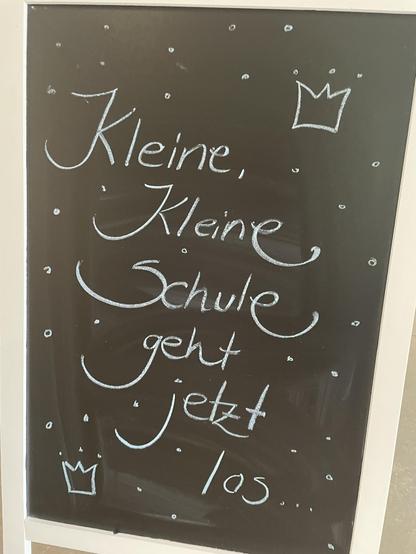 Kleine,
Kleine
Schule
geht
jetzt
los...